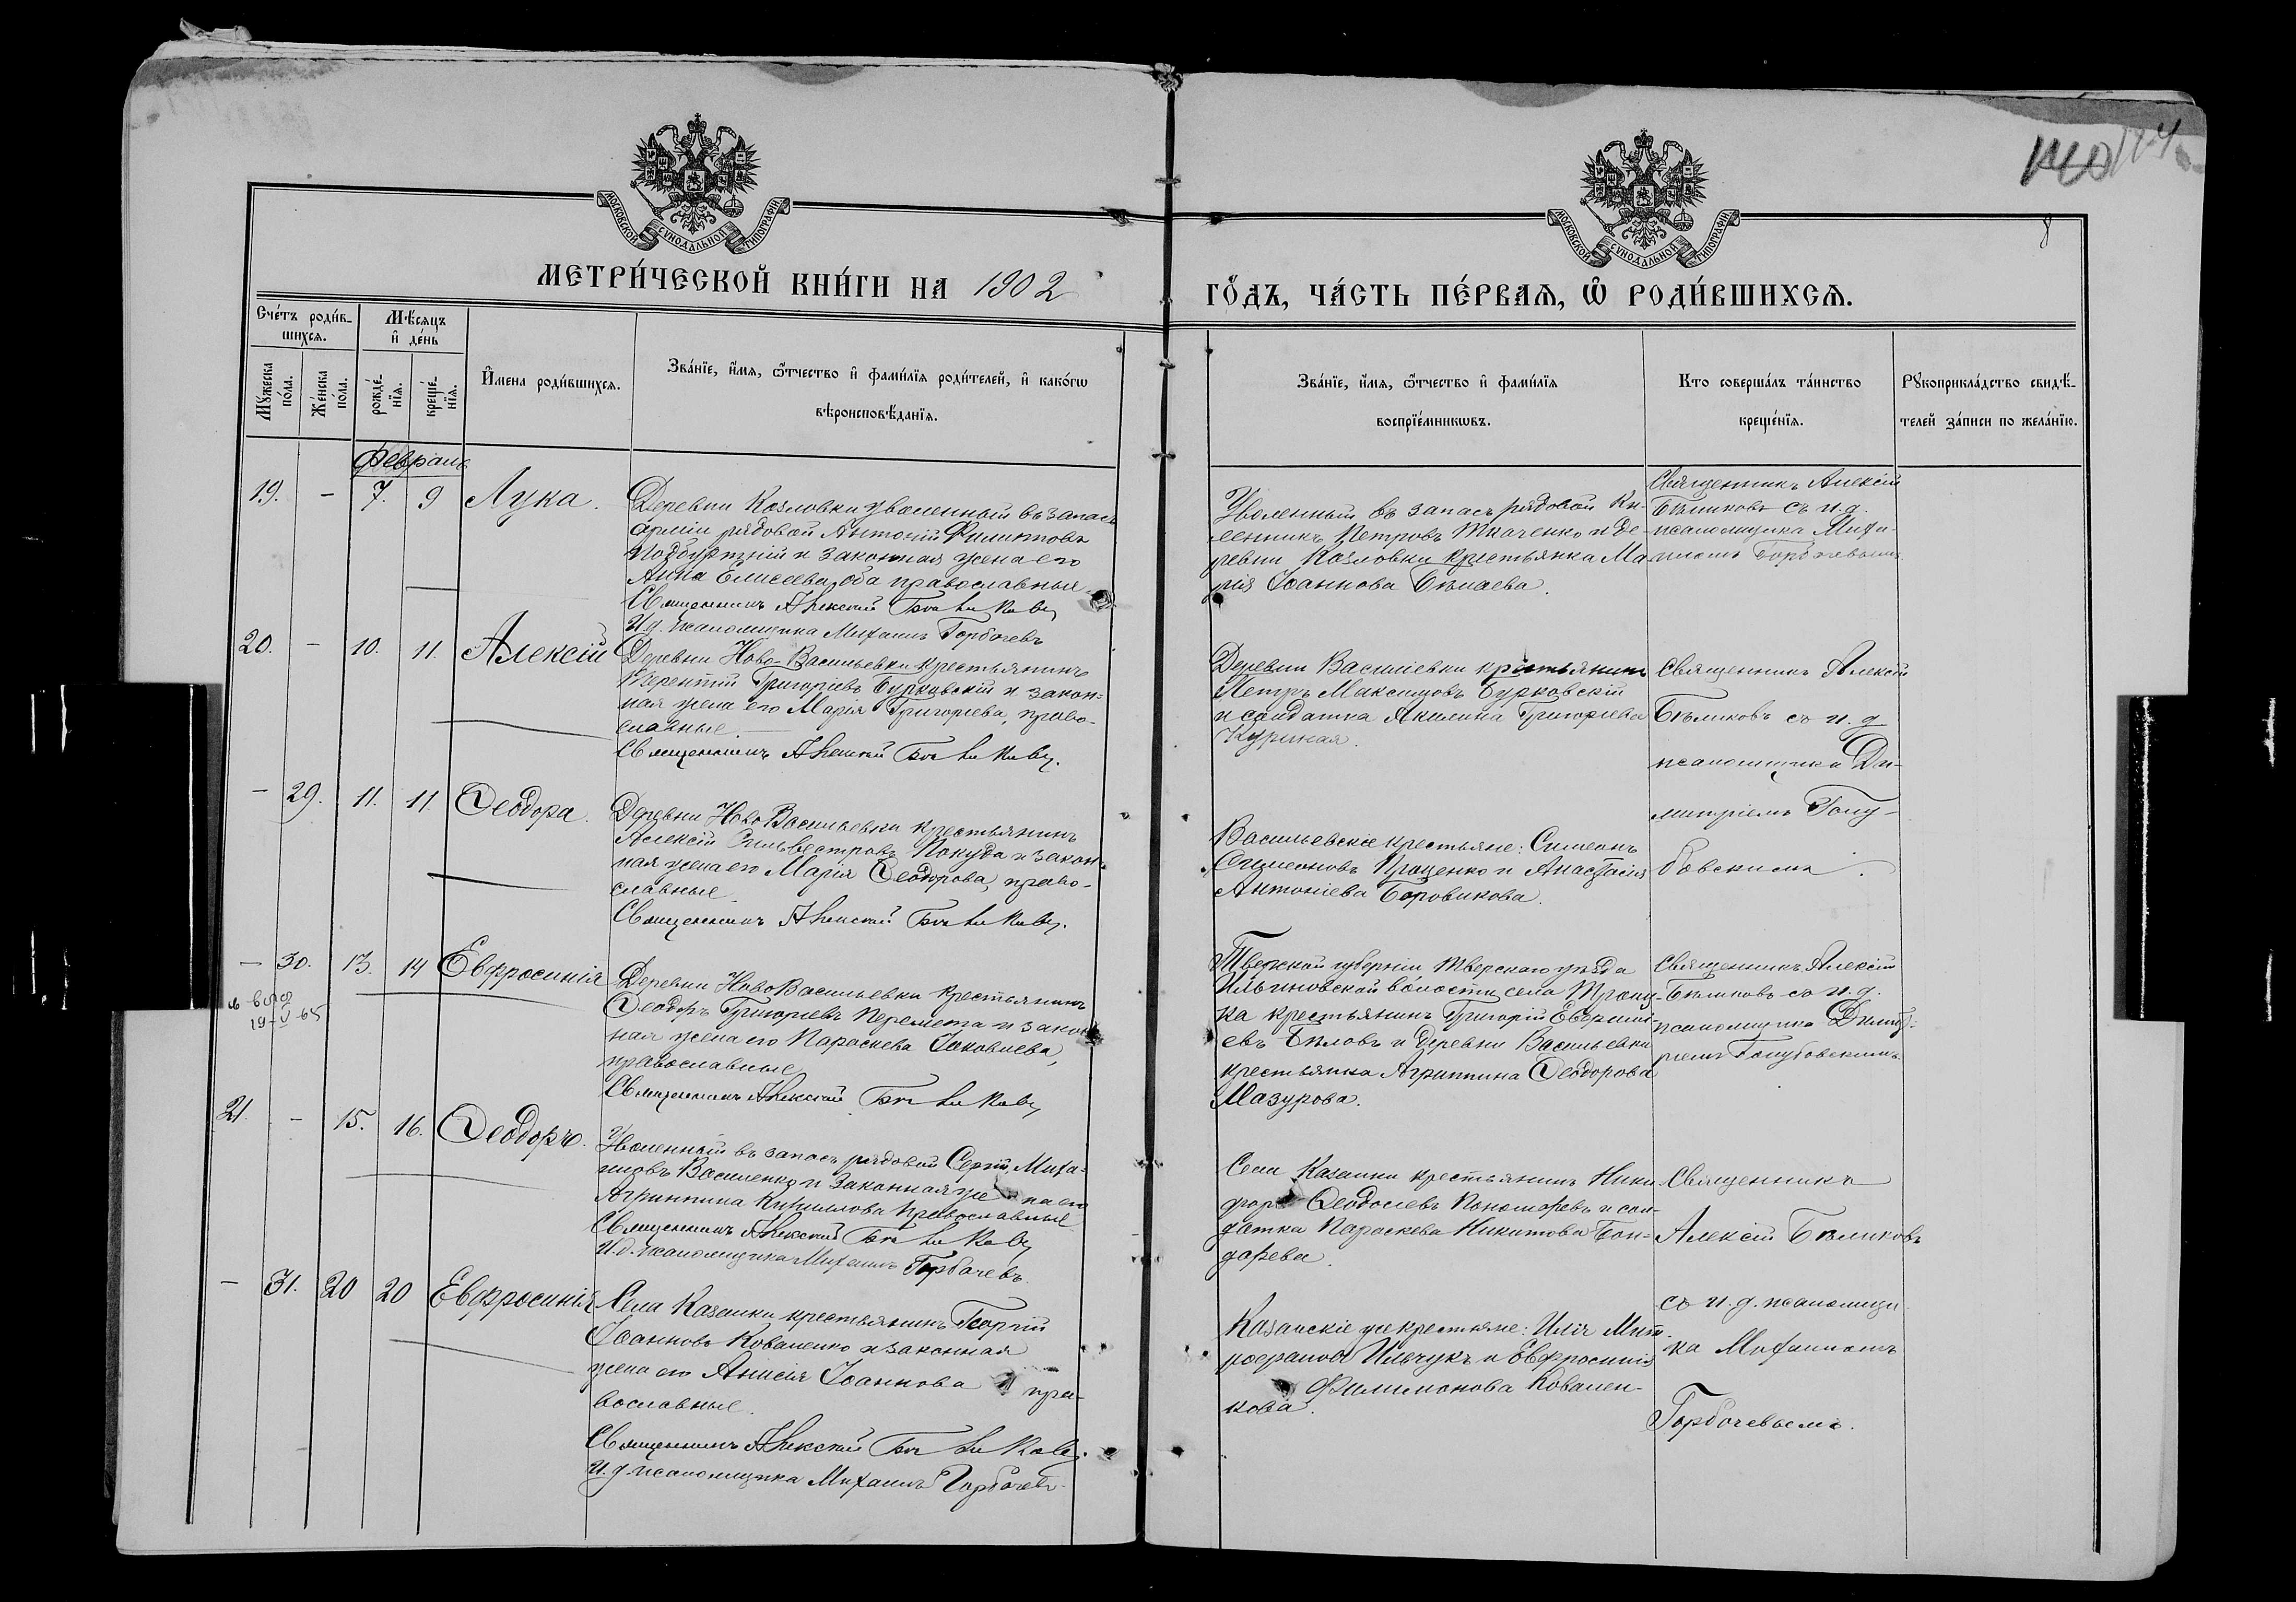 140 174
8
МОСКОВСКОЙ СѴНОДАЛЬНОЙ ТИПОГРАФІИ
МОСКОВСКОЙ СѴНОДАЛЬНОЙ ТИПОГРАФІИ
МЕТРИ́ЧЕСКОЙ КНИ́ГИ НА 1902
ГО́ДЪ, ЧА́СТЬ ПЕ́РВАѦ, Ѽ РОДИ́ВШИХСѦ.
Сче́тъ роди́в-
шихсѧ.
Мѣ́сѧцъ
и҆ де́нь
Мꙋ́жеска по́ла.
Же́нска по́ла.
рожде́-нїѧ.
креще́-нїѧ.
И҆мена роди́вшихсѧ.
Зва́нїе, и҆́мѧ, ѻ҆́тчество и҆ фами́лїѧ роди́телей, и҆ како́гѡ
вѣроисповѣ́данїѧ.
Зва́нїе, и҆́мѧ, ѻ҆́тчество и҆ фами́лїѧ
воспрїе́мникѡвъ.
Кто соверша́лъ та́инство
креще́нїѧ.
Рꙋкоприкла́дство свидѣ́-
телей за́писи по жела́нїю.
Февраль
19. – 7. 9 Лука.
Деревни Козловки уволенный въ запасъ
арміи рядовой Антоній Филиповъ
и законная жена его
Анна Елисеева, оба православные
Священникъ Алексій Бѣликовъ
И.д. псаломщика Михаилъ Горбачевъ
Уволенный въ запасъ рядовой Ки-
Петровъ Ткаченко и де-
ревни Козловки крестьянка Ма-
рія Іоаннова Бѣлаева.
Священникъ Алексій
Бѣликовъ съ и.д.
псаломщика Миха-
иломъ Горбачевымъ
20. – 10. 11. Алексій
Деревни Ново-Васильевки крестьянинъ
Терентій Григоріевъ Бурковскій и закон-
ная жена его Марія Григорьева, право-
славные.
Священникъ Алексій Бѣликовъ.
Деревни Василіевки крестьянинъ
Петръ Максимовъ Бурковскій
и солдатка Акилина Григорьева
Курикая.
Священникъ Алексій
Бѣликовъ съ и.д.
псаломщика Ди-
митріемъ Голу-
бовскимъ.
– 29. 11. 11 Ѳеодора.
Деревни Ново Васильевки крестьянинъ
Алексій Сильвестровъ Покуда и закон-
ная жена его Марія Ѳеодорова, право-
славные.
Священникъ Алексій Бѣликовъ.
Васильевскіе крестьяне: Симеонъ
Симеоновъ Проценко и Анастасія
Антоніева Боровикова.
– 30. 13. 14 Евфросинія
19-V-65
Деревни Ново Васильевки крестьянинъ
Ѳеодоръ Григорьевъ Перемета и закон-
ная жена его Параскева Іаковлева,
православные
Священникъ Алексій Бѣликовъ
Тверской губерніи Тверскаго уѣзда
Ильиновской волости села
ка крестьянинъ Григорій
евъ Бѣловъ и деревни Васильевки
крестьянка Агриппина Ѳеодорова
Мазурова.
Священникъ Алексій
Бѣликовъ съ и.д.
псаломщика Димит-
ріемъ Голубовскимъ
21. – 15. 16. Ѳеодоръ.
Уволенный въ запасъ рядовой Сергій Миха-
иловъ Василенко и законная жена его
Агриппина Кириллова православные
Священникъ Алексій Бѣликовъ
И.д. псаломщика Михаилъ Горбачевъ.
Села Казанки крестьянинъ Ники
форъ Ѳеодосіевъ Пономаревъ и сол-
датка Параскева Никитова Бон-
дарева.
Священникъ
Алексій Бѣликовъ
съ и.д. псаломщи-
ка Михаиломъ
Горбачевымъ.
– 31. 20 20 Евфросинія
Села Казанки крестьянинъ Георгій
Іоанновъ Коваленко и законная
жена его Анисія Іоаннова пра-
вославные.
Священникъ Алексій Бѣликовъ.
И.д. псаломщика Михаилъ Горбачевъ.
Казанскіе же крестьяне: Илія Мит-
рофановъ Ильчукъ и Евфросинія
Филимонова Ковален-
кова.